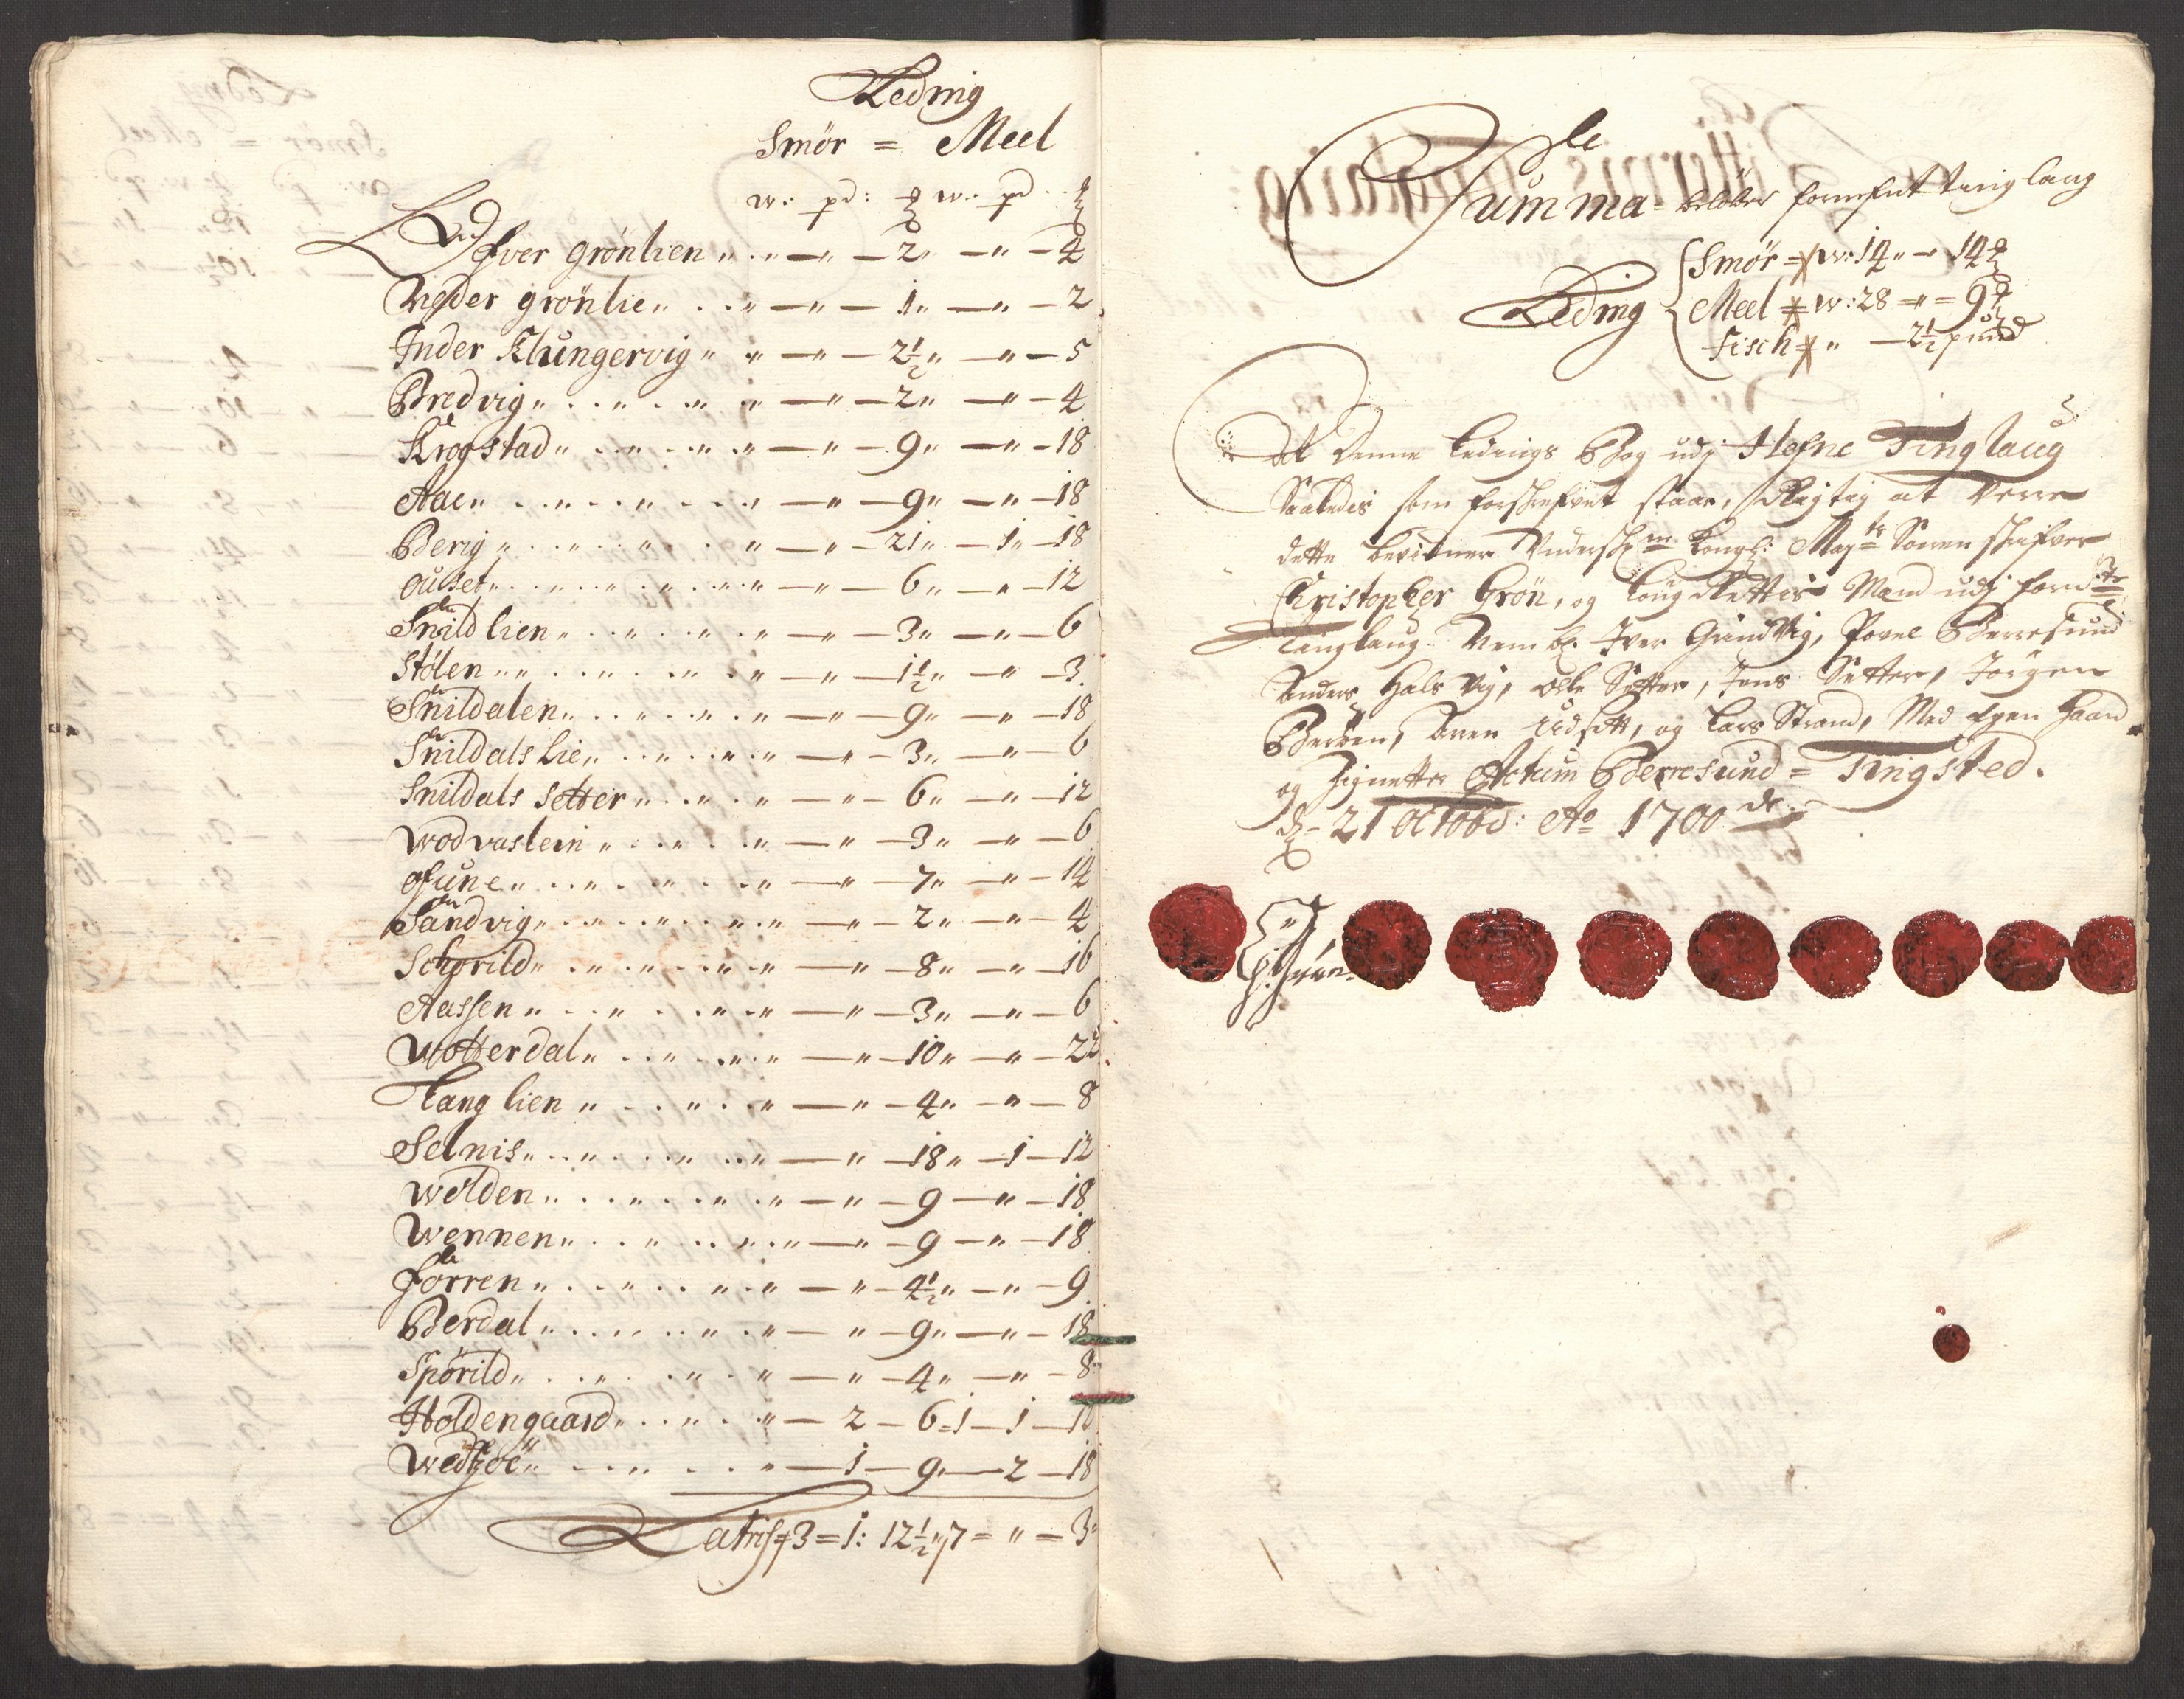 Leding
Smör = Meel
w: pd: ℔ w: pd ℔
Öfver grönlien " " — " — 2 " — " — 4
Neder grönlie " " — " — 1 " — " — 2
Inder Klungervig " " — " — 2½ " — " — 5
Bredvig " " — " — 2 " — " — 4
Krogstad " " — " — 9 " — " — 18
Aae " " — " — 9 " — " — 18
Berig " " — " — 21 " — 1 " — 18
ouset " " — " — 6 " — " — 12
Snildlien " " — " — 3 " — " — 6
Stölen " " — " — 1½ " — " — 3
Snildalen " " — " — 9 " — " — 18
Snildals lie " " — " — 3 " — " — 6
Snildals setter " " — " — 6 " — " — 12
Wodvaslein " " — " — 3 " — " — 6
ofune " " — " — 7 " — " — 14
Sandvig " " — " — 2 " — " — 4
Schorild " " — " — 8 " — " — 16
Aassen " " — " — 3 " — " — 6
Wotterdal " " — " — 10 " — " — 22
Lang lien " " — " — 4 " — " — 8
Selnis " " — " — 18 " — 1 — 12
Wolden " " — " — 9 — " — 18
Wennen " " — " — 9 — " — 18
forren " " — " — 4½ " — " — 9
Berdal " " — " — 9 " — " — 18
Spörild " " — " — 4 " — " — 8
Holdengaard " " — 2 — 6 = 1 — 1 — 18
Wedöe " " — 1 — 9 " — 2 — 18
Latris 3 = 1: 12½ " 7 = " = 3 "
Summa beløber forneſnt tinglaug
Leding
Smör = w: 14 " — 14 ℔
Meel = w: 28 = " = 9 ℔
Fisch = " — 2½ pund
At Denne Ledings Bog udj Hefne Tinglaug
Saaledis som forskrefvet staar, Rigtig at Verre
dette bevidner Undersk: Kongl: Mayts Sorenskrifver
Christopher Grön, og Laug Rettis Mænd udj fornte
Tinglaug Nembl. Iver Grundvig, Povel Berresund
Anders Hals Vig, Olle Setter, Jens Setter, Jörgen
Beröen, Aren Udsett, og Lars Strand, Med Egen Haand
og Zignetter Actum Berresund = Tingsted.
d - 21 Octobr: Ao 1700 de.
C. Grön